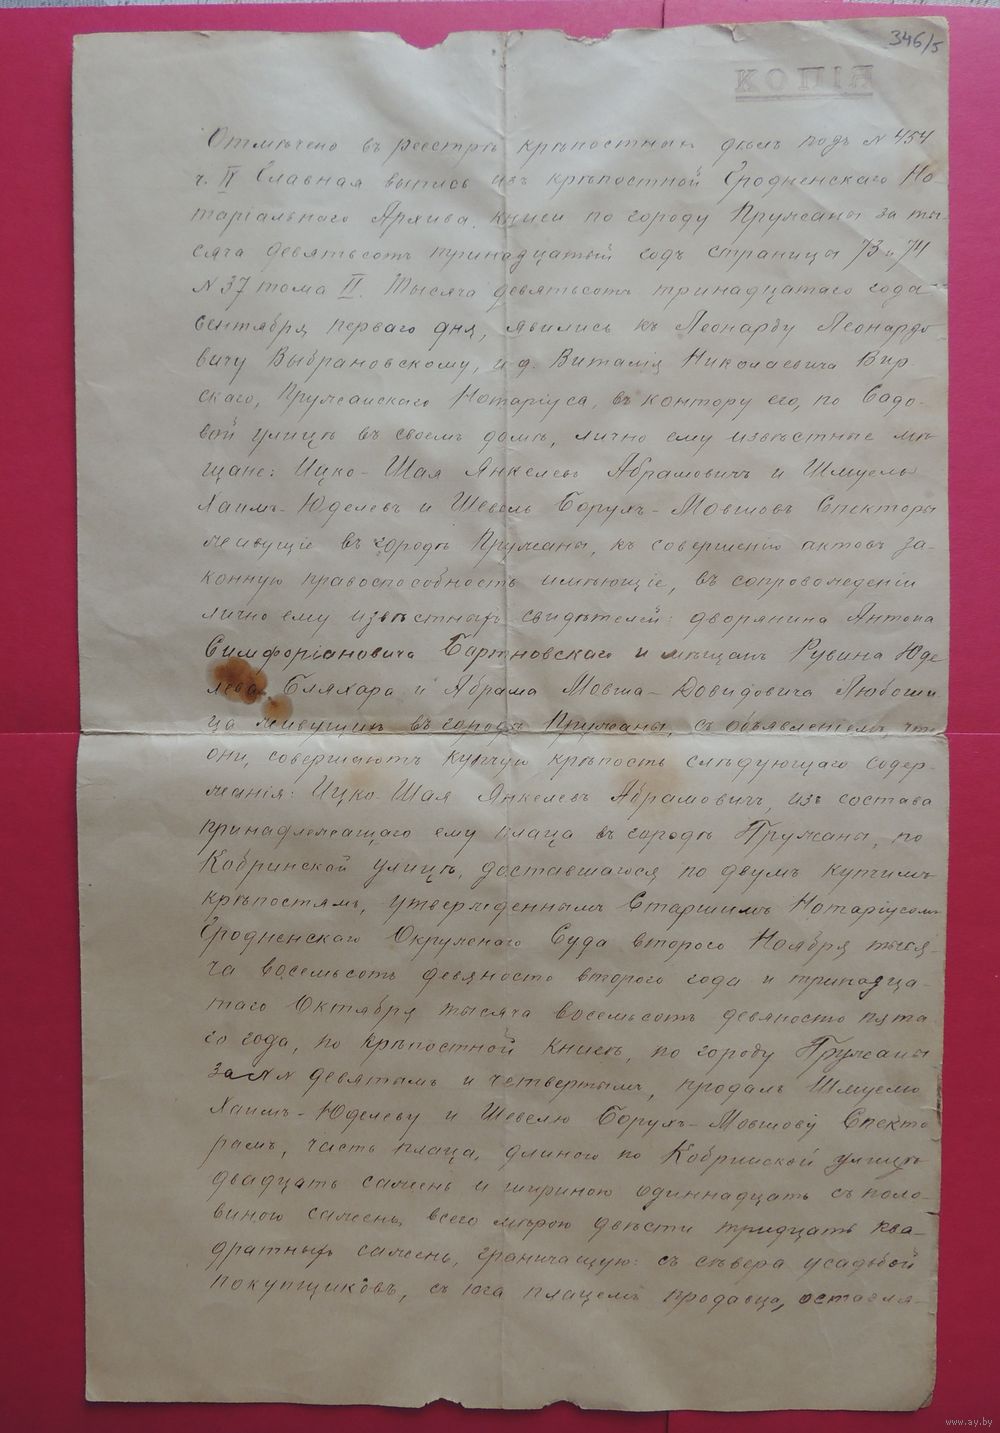 346/5
КОПІЯ
Отмѣчено въ реестрѣ крѣпостныхъ дѣлъ подъ N 454
ч. II Главная выпись изъ крѣпостной Гродненскаго Но-
таріальнаго Архива книги по городу Пружаны за ты-
сяча девятьсотъ тринадцатый годъ страницы 73 и 74
N 37 тома II. Тысяча девятьсотъ тринадцатаго года
Сентября перваго дня, явились къ Леонарду Леонардо-
вичу Выбрановскому, и.д. Виталія Николаевича Вир-
скаго, Пружанскаго Нотаріуса, въ контору его, по Садо-
вой улицѣ въ своемъ домѣ, лично ему извѣстные мѣ-
щане: Ицко-Шая Янкелевъ Абрамовичъ и Шмуель
Хаимъ-Юделевъ и Шевель Борухъ-Мовшовъ Спекторы
живущіе въ городѣ Пружаны, къ совершенію актовъ за-
конную правоспособность имѣющіе, въ сопровожденіи
лично ему извѣстныхъ свидѣтелей: дворянина Антона
Симфоріановича Бартновскаго и мѣщанъ Рувина Юде-
лева Бляхара и Абрама Мовша-Довидовича Любоши
ца живущихъ въ городѣ Пружаны, съ объявленіемъ, что
они, совершаютъ купчую крѣпость слѣдующаго содер-
жанія: Ицко-Шая Янкелевъ Абрамовичъ, изъ состава
принадлежащаго ему плаца въ городѣ Пружаны, по
Кобринской улицѣ, доставшагося по двумъ купчимъ
крѣпостямъ, утвержденнымъ Старшимъ Нотаріусомъ
Гродненскаго Окружнаго Суда второго Ноября тыся-
ча восемьсотъ девяносто второго года и тринадца-
таго Октября тысяча восемьсотъ девяносто пята
го года, по крѣпостной книгѣ, по городу Пружаны
за N N девятымъ и четвертымъ, продалъ Шмуелю
Хаимъ-Юделеву и Шевелю Борухъ-Мовшову Спекто
рамъ, часть плаца, длиною по Кобринской улицѣ
двадцать сажень и шириною одиннадцать съ поло-
виною сажень, всего мѣрою двѣсти тридцать ква-
дратныхъ сажень, граничащую: съ сѣвера усадьбой
покупщиковъ, съ юга плацемъ продавца, оставля-
www.ay.by